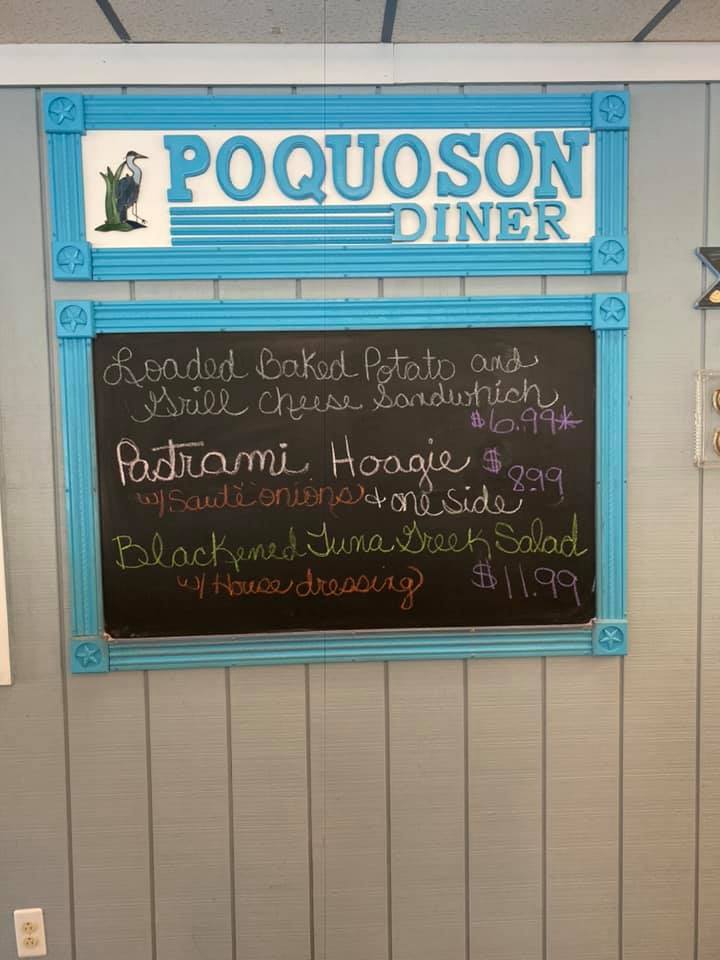 POQUOSON
DINER
Loaded Baked Potato and
Grill cheese Sandwhich
$6.99*
Pastrami Hoagie $8.99
w/ Sauté onions & one side
Blackened Tuna Greek Salad
w/ House dressing $11.99